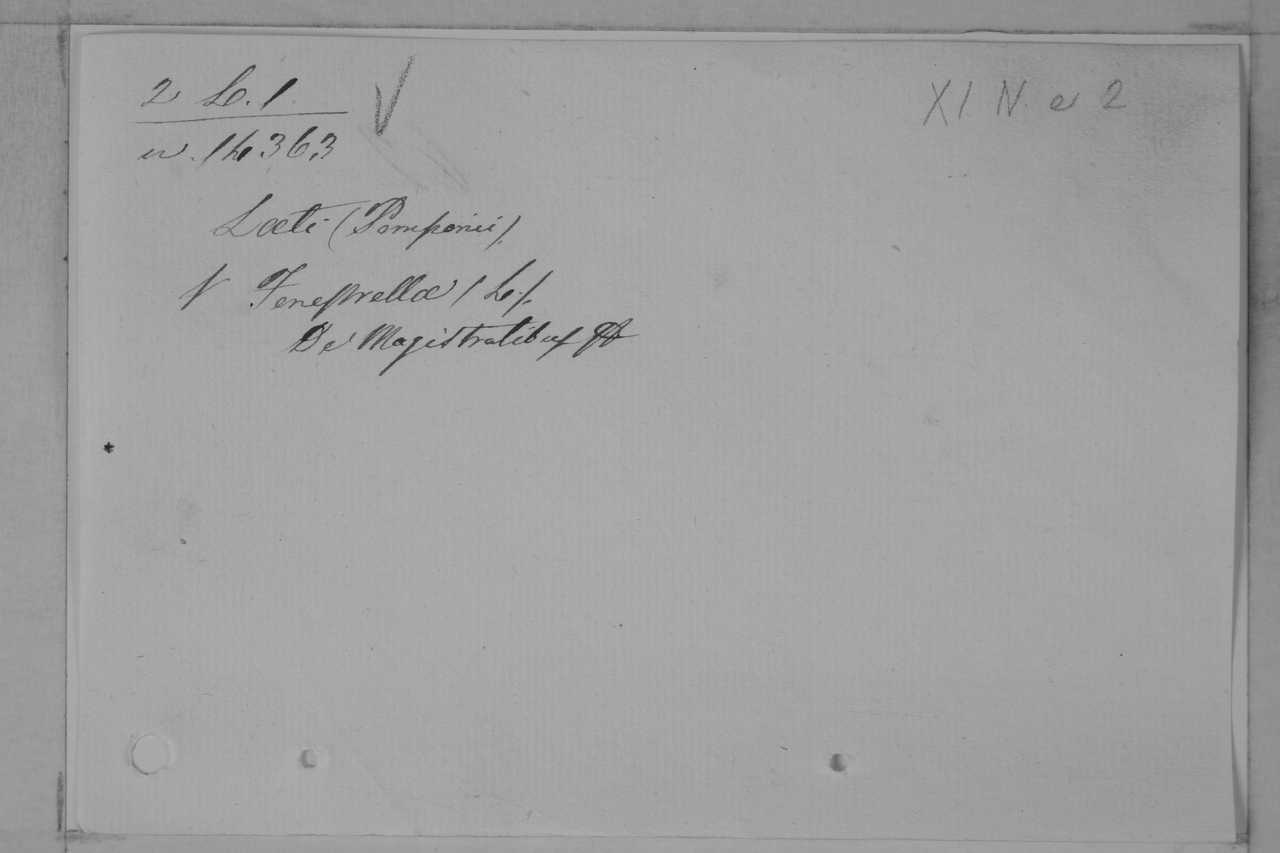 2 L. 1. XI N e 2
w. 14363
Laeti (Pomponii).
V Fenestrellae (L.).
De Magistratibus